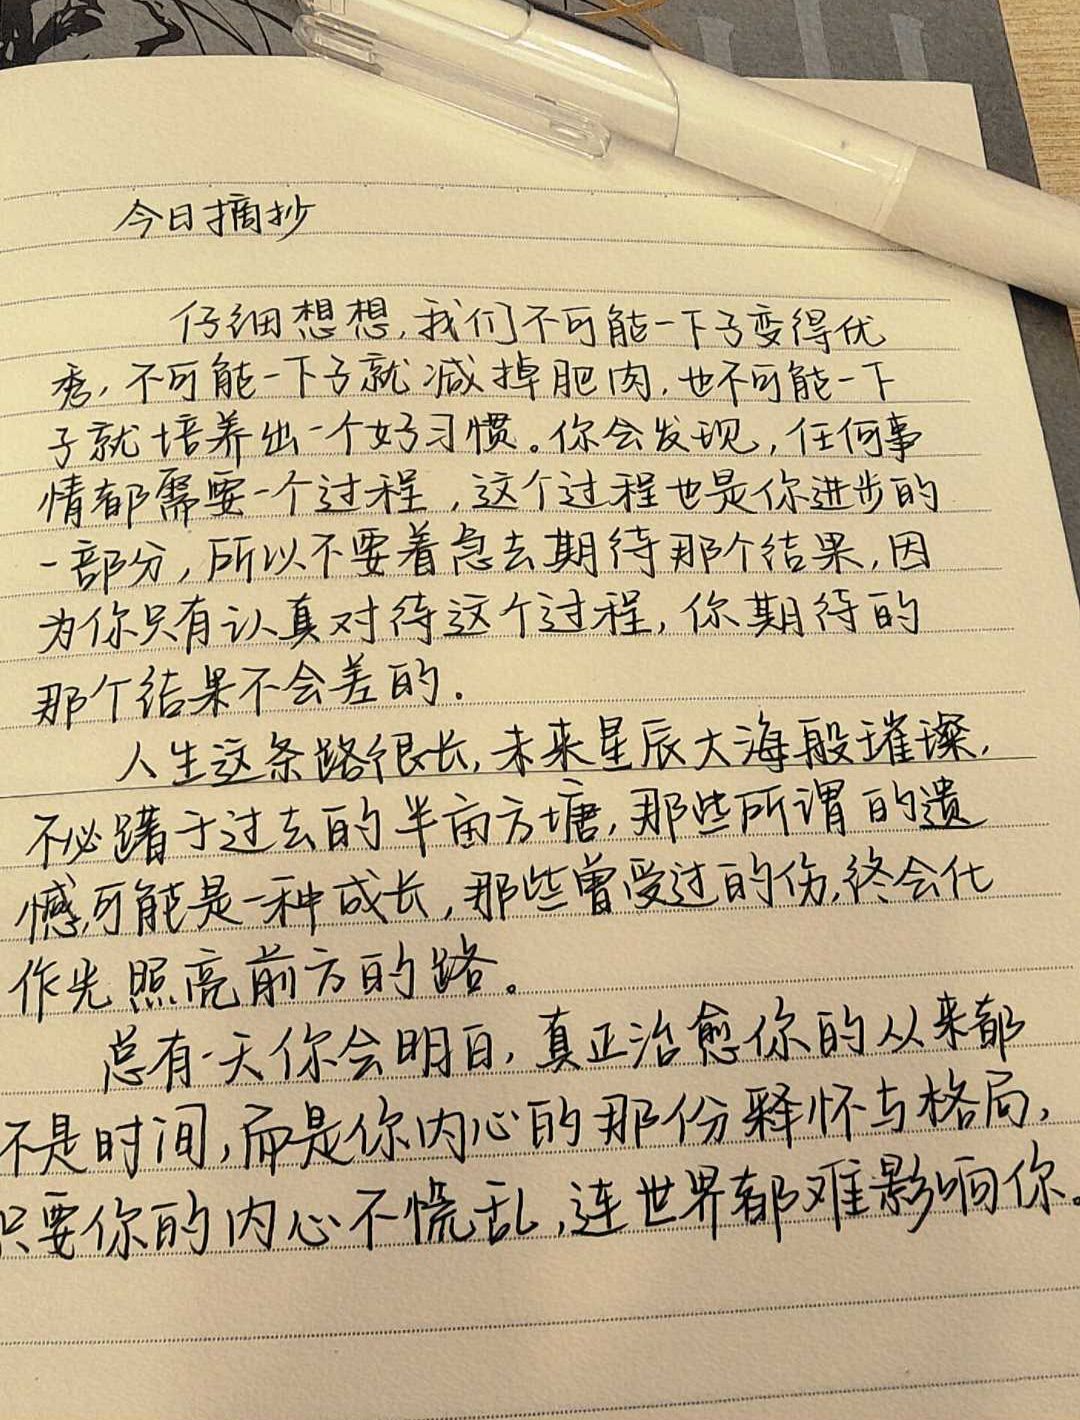 今日摘抄
仔细想想,我们不可能一下子变得优
秀,不可能一下子就减掉肥肉,也不可能一下
子就培养出一个好习惯。你会发现,任何事
情都需要一个过程,这个过程也是你进步的
一部分,所以不要着急去期待那个结果,因
为你只有认真对待这个过程,你期待的
那个结果不会差的.
人生这条路很长,未来星辰大海般璀璨,
不必踌于过去的半亩方塘,那些所谓的遗
憾,可能是一种成长,那些曾受过的伤,终会化
作光照亮前方的路。
总有一天你会明白,真正治愈你的从来都
不是时间,而是你内心的那份释怀与格局,
只要你的内心不慌乱,连世界都难影响你。